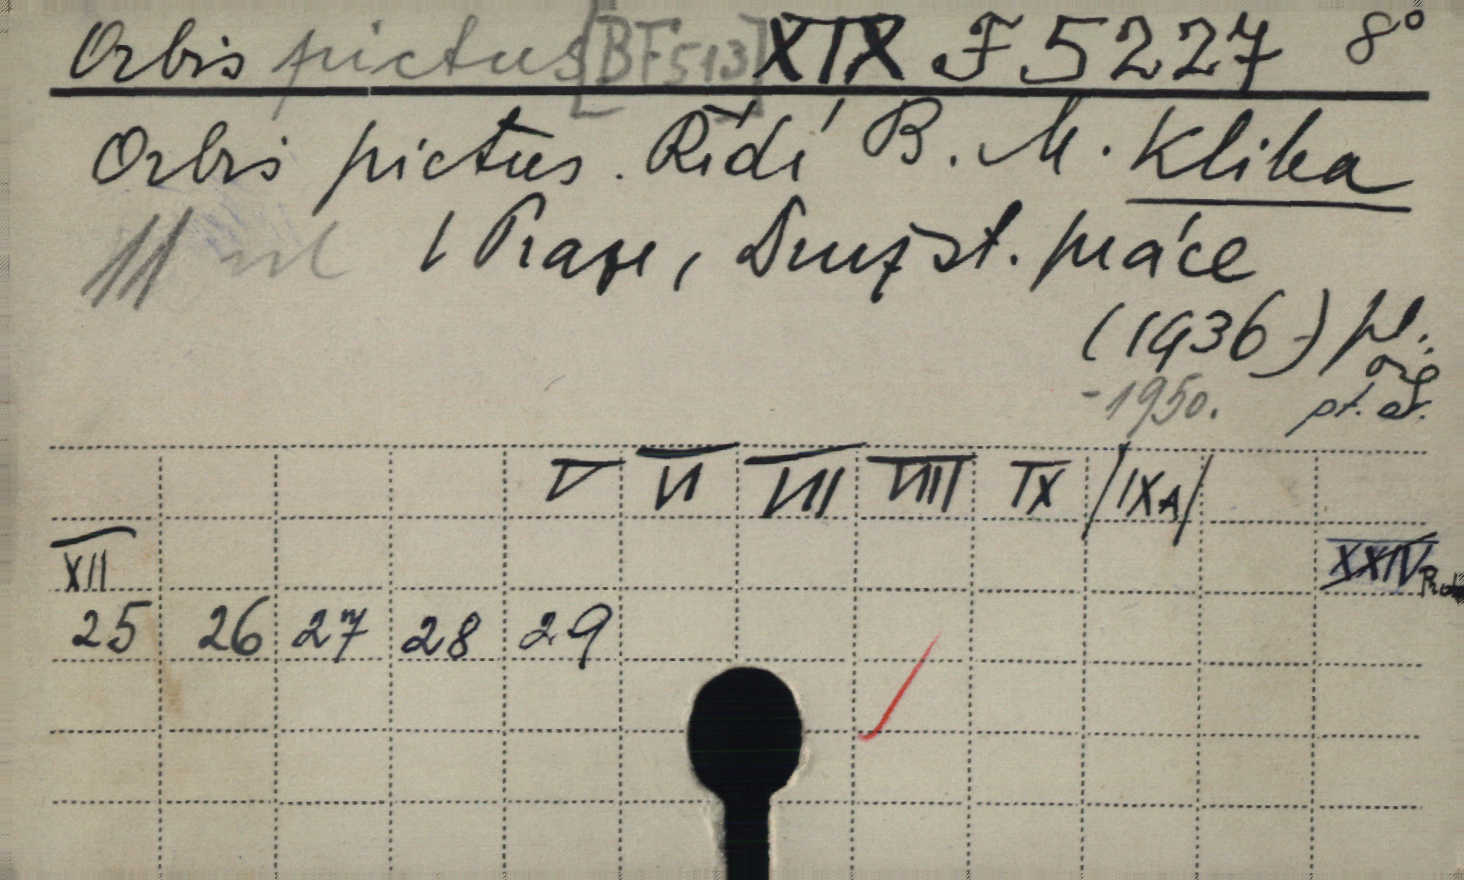 Orbis pictus [BF513] XIX F 5227 8°
Orbis pictus. Řídí B. M. Klika
V Praze, Družst. práce
(1936-) pl.
-1950. pt. at.
V VI VII VIII IX /IXA/
XII XXIV
25 26 27 28 29